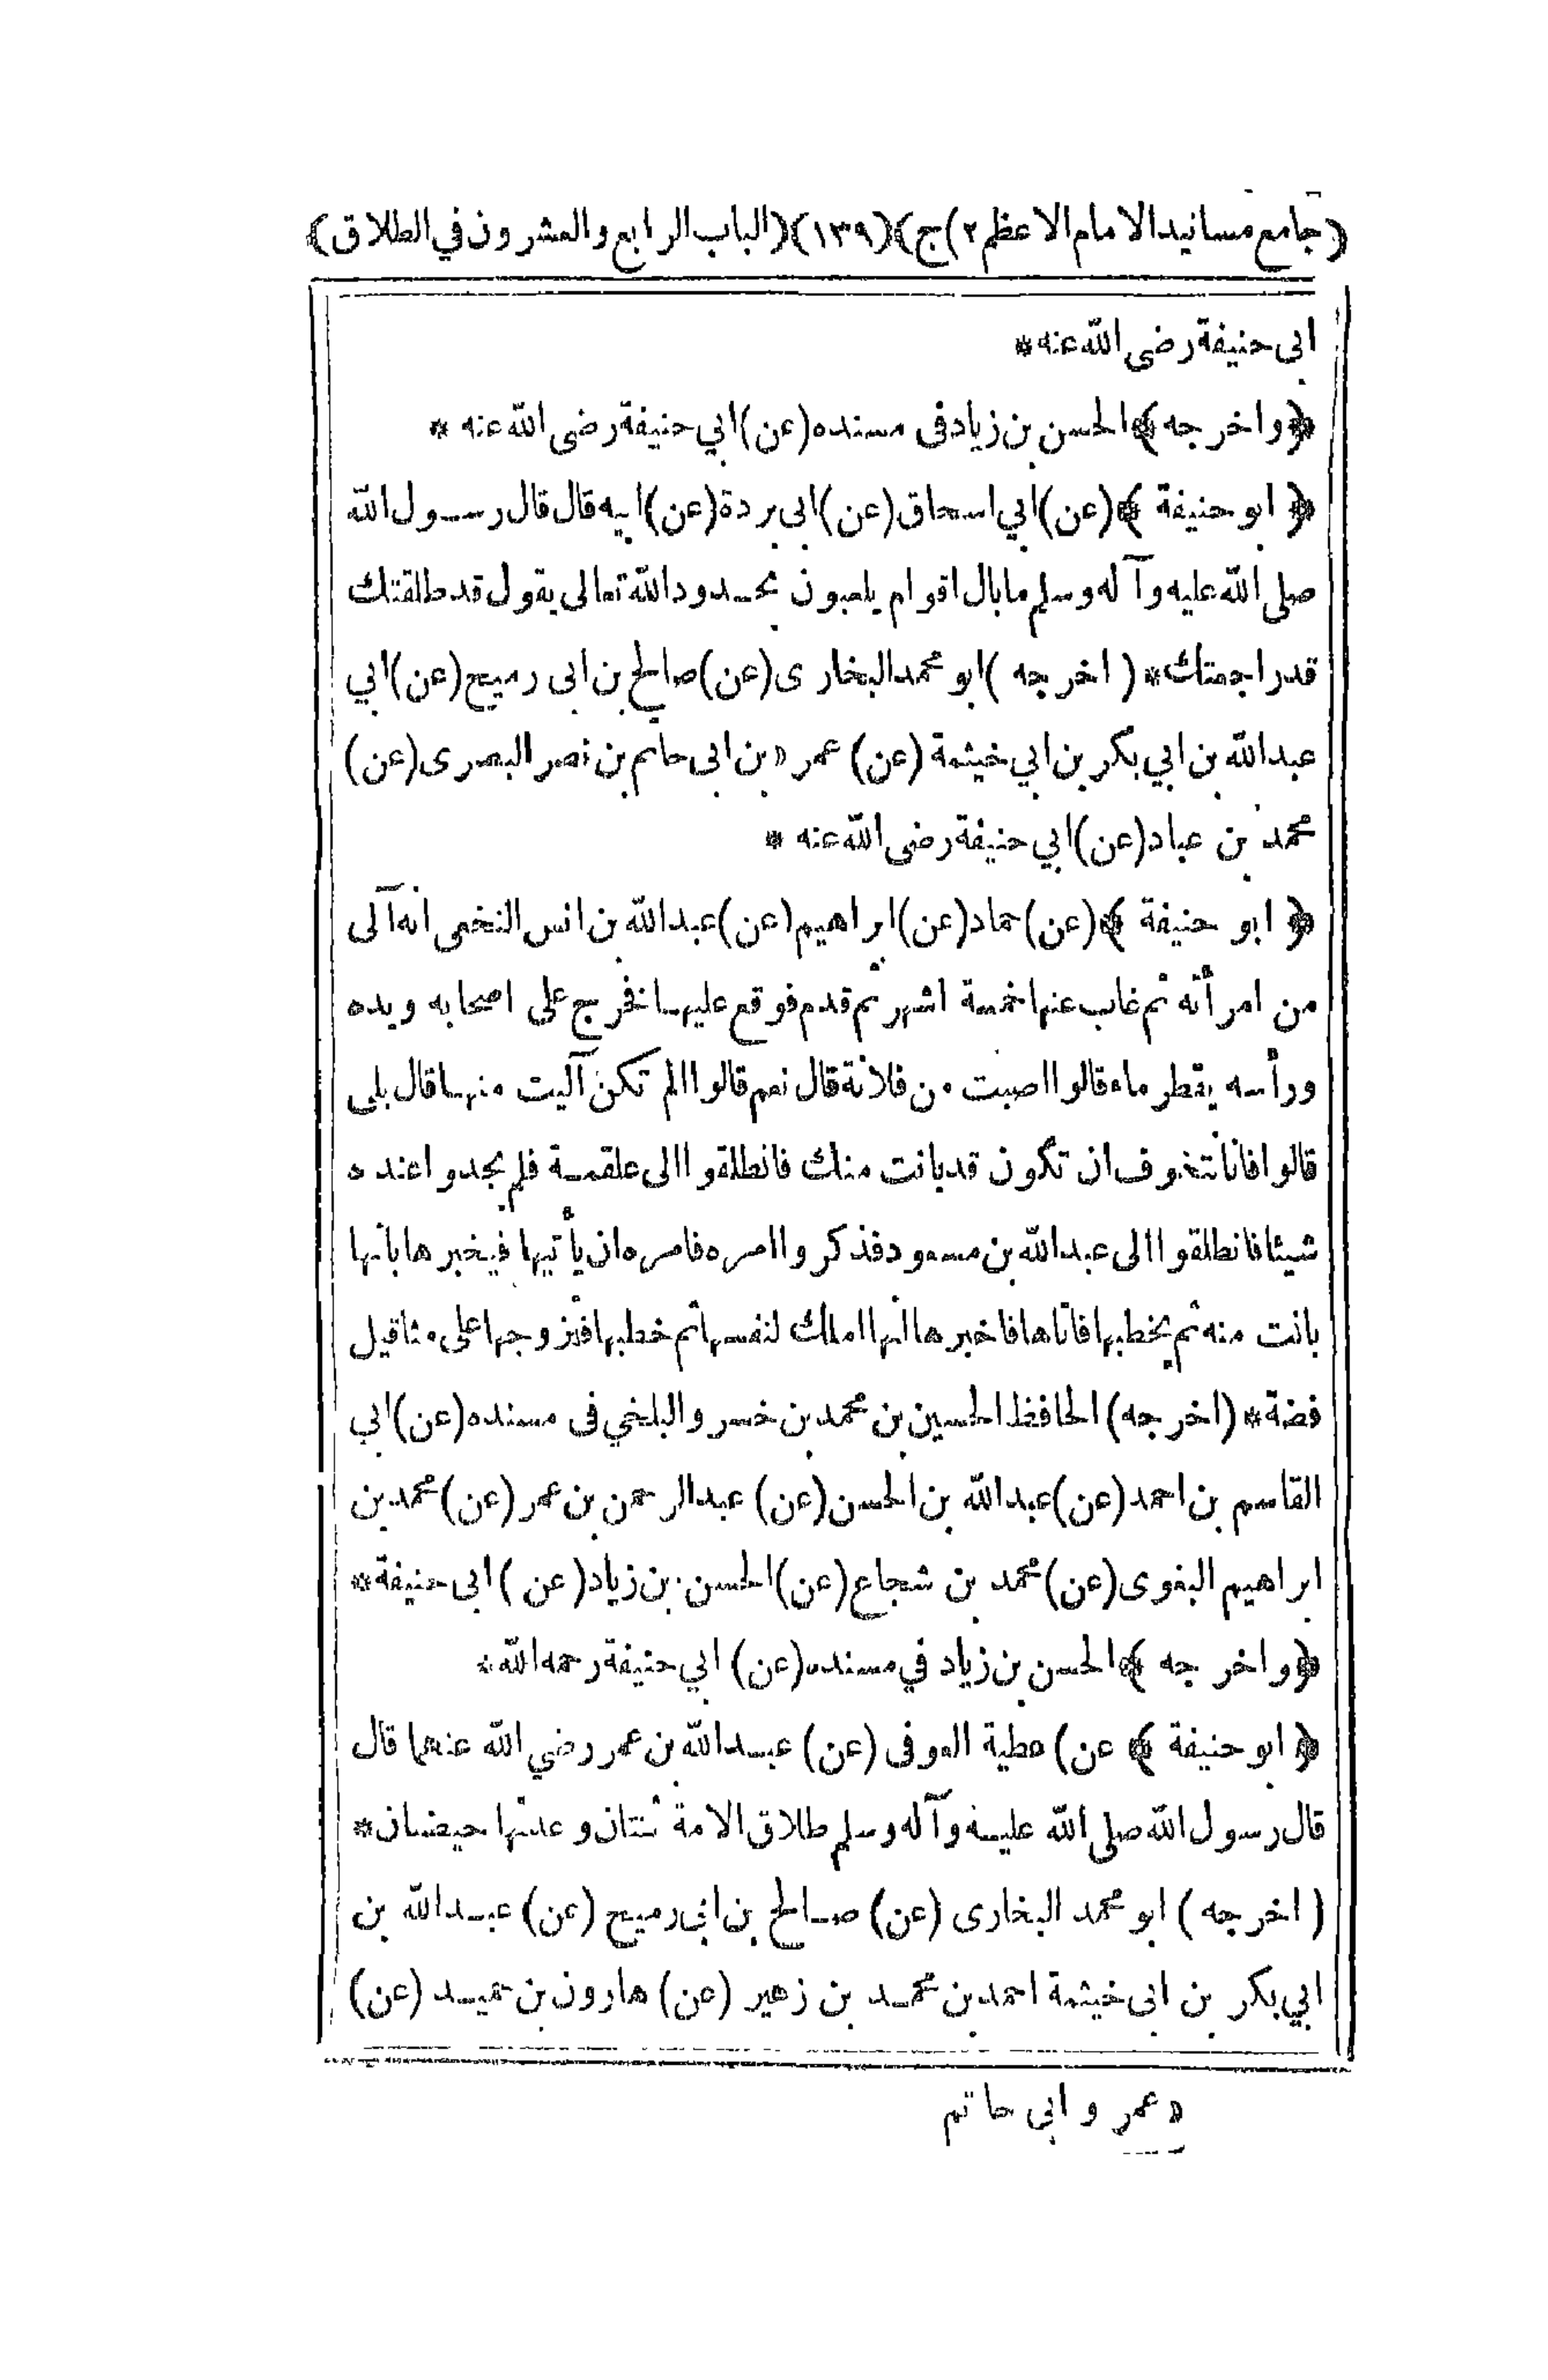 (جامع مسانيد الامام الاعظم ٢) ج)(١٣٩)(الباب الرابع والعشرون في الطلاق)
ابى حنيفة رضى الله عنه *
﴿واخرجه﴾ الحسن بن زياد فى مسنده (عن) ابي حنيفة رضى الله عنه *
﴿ابو حنيفة﴾ (عن) ابي اسحاق (عن) ابى بردة (عن) ابيه قال قال رسول الله
صلى الله عليه وآله وسلم مابال اقوام يلعبون بحدود الله تعالى يقول قد طلقتك
قد راجعتك * (اخرجه) ابو محمد البخارى (عن) صالح بن ابى رميح (عن) ابي
عبد الله بن ابي بكر بن ابي خيثمة (عن) عمر « بن ابى حاتم بن نصر البصرى (عن)
محمد بن عباد (عن) ابي حنيفة رضى الله عنه *
﴿ابو حنيفة﴾ (عن) حماد (عن) ابراهيم (عن) عبد الله بن انس النخعى انه آلى
من امرأته ثم غاب عنها خمسة اشهر ثم قدم فوقع عليها فخرج على اصحابه ويده
ورأسه يقطر ماء قالوا اصبت من فلانة قال نعم قالوا الم تكن آليت منها قال بلى
قالوا فانا نتخوف ان تكون قد بانت منك فانطلقوا الى علقمة فلم يجدوا عنده
شيئا فانطلقوا الى عبد الله بن مسعود فذكروا امره فامره ان يأتيها فيخبرها بانها
بانت منه ثم يخطبها فاتاها فاخبرها انها املك لنفسها ثم خطبها فتزوجها على مثاقيل
فضة * (اخرجه) الحافظ الحسين بن محمد بن خسرو البلخي فى مسنده (عن) ابي
القاسم بن احمد (عن) عبد الله بن الحسن (عن) عبد الرحمن بن عمر (عن) محمد بن
ابراهيم البغوى (عن) محمد بن شجاع (عن) الحسن بن زياد (عن) ابى حنيفة *
﴿واخرجه﴾ الحسن بن زياد في مسنده (عن) ابي حنيفة رحمه الله *
﴿ابو حنيفة﴾ عن) عطية العوفى (عن) عبد الله بن عمر رضي الله عنهما قال
قال رسول الله صلى الله عليه وآله وسلم طلاق الامة ثنتان وعدتها حيضتان *
(اخرجه) ابو محمد البخارى (عن) صالح بن ابى رميح (عن) عبد الله بن
ابي بكر بن ابى خيثمة احمد بن محمد بن زهير (عن) هارون بن حميد (عن)
« عمر و ابى حاتم